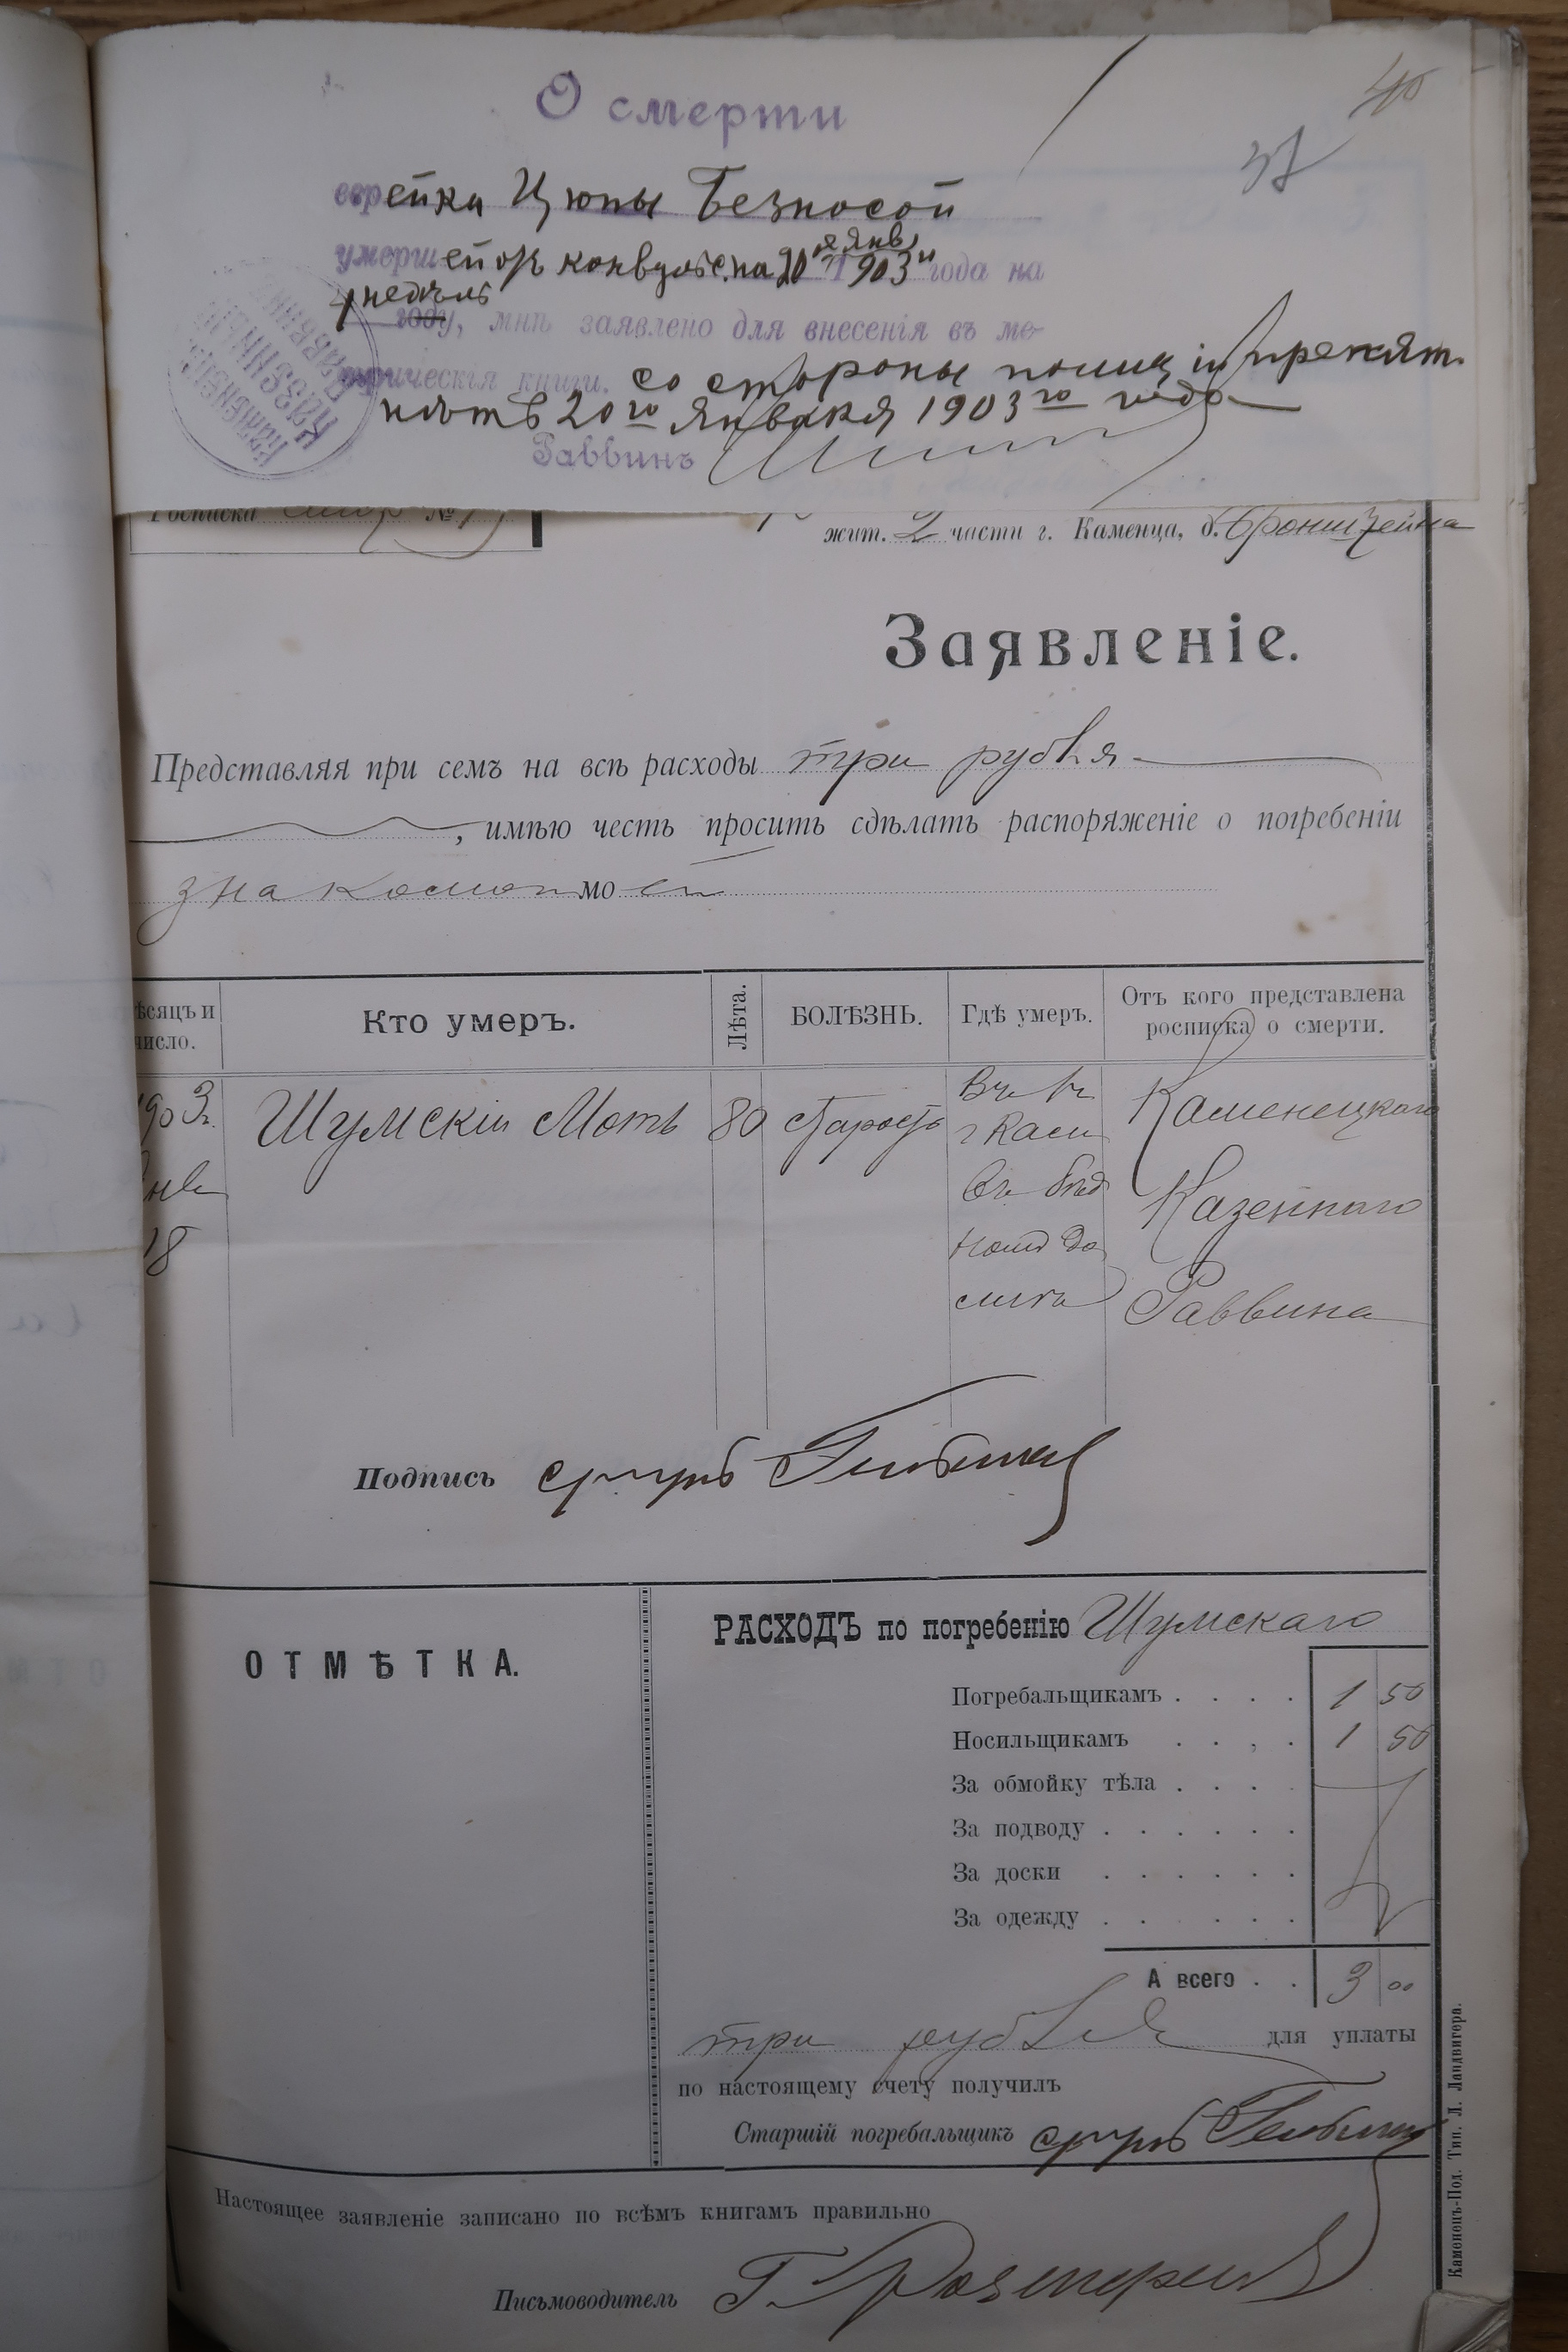 О смерти
40
37
еврейки Цюпы Безносой
умершей отъ конвульс. на 20 янв. 1903 года на
4 недѣлѣ
году, мнѣ заявлено для внесенія въ ме-
трическія книги. со стороны полиціи препят.
нѣтъ 20го Января 1903го года
Раввинъ
Росписка №
жит. 2 части г. Каменца, д. Бронштейна
Заявленіе.
Представляя при семъ на всѣ расходы три рубля
, имѣю честь просить сдѣлать распоряженіе о погребеніи
знакомой моей
ѣсяцъ и число.
Кто умеръ.
Лѣта.
БОЛѢЗНЬ.
Гдѣ умеръ.
Отъ кого представлена росписка о смерти.
1903 г.
Янв
18
Шумскій Моть
80
старость
Въ
г Каме
въ бѣд
ном до
Каменецкаго
Казеннаго
Раввина
Подпись
ОТМѢТКА.
РАСХОДЪ по погребенію Шумскаго
Погребальщикамъ . . . . 1 50
Носильщикамъ . . , . 1 50
За обмойку тѣла . . . .
За подводу . . . . . .
За доски . . . . . .
За одежду . . . . . .
А всего . . 3 00
три рубля для уплаты
по настоящему счету получилъ
Старшій погребальщикъ
Настоящее заявленіе записано по всѣмъ книгамъ правильно
Письмоводитель
Каменецъ-Под. Тип. Л. Ландвигера.